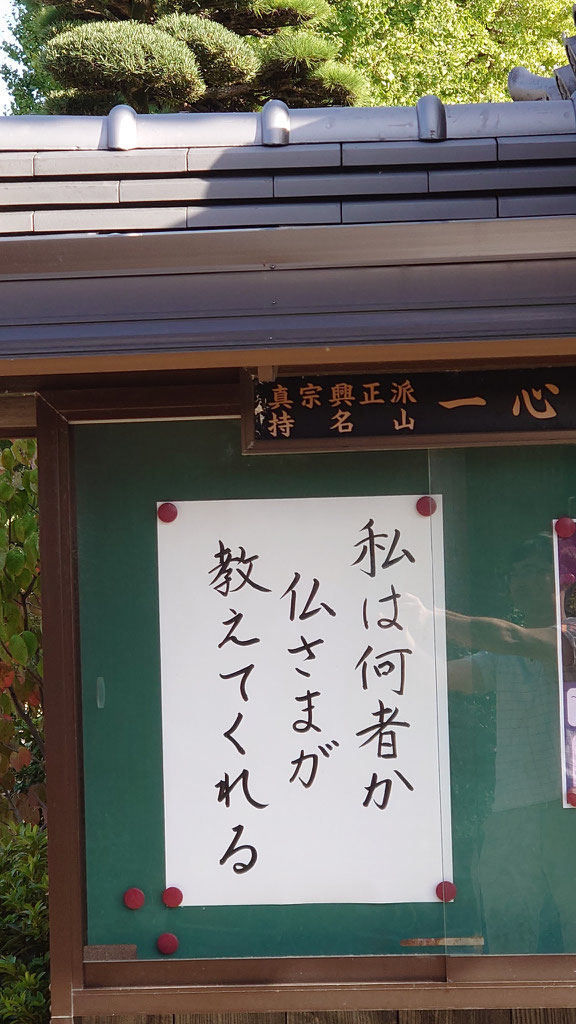 真宗興正派
持名山
一心
私は何者か
仏さまが
教えてくれる